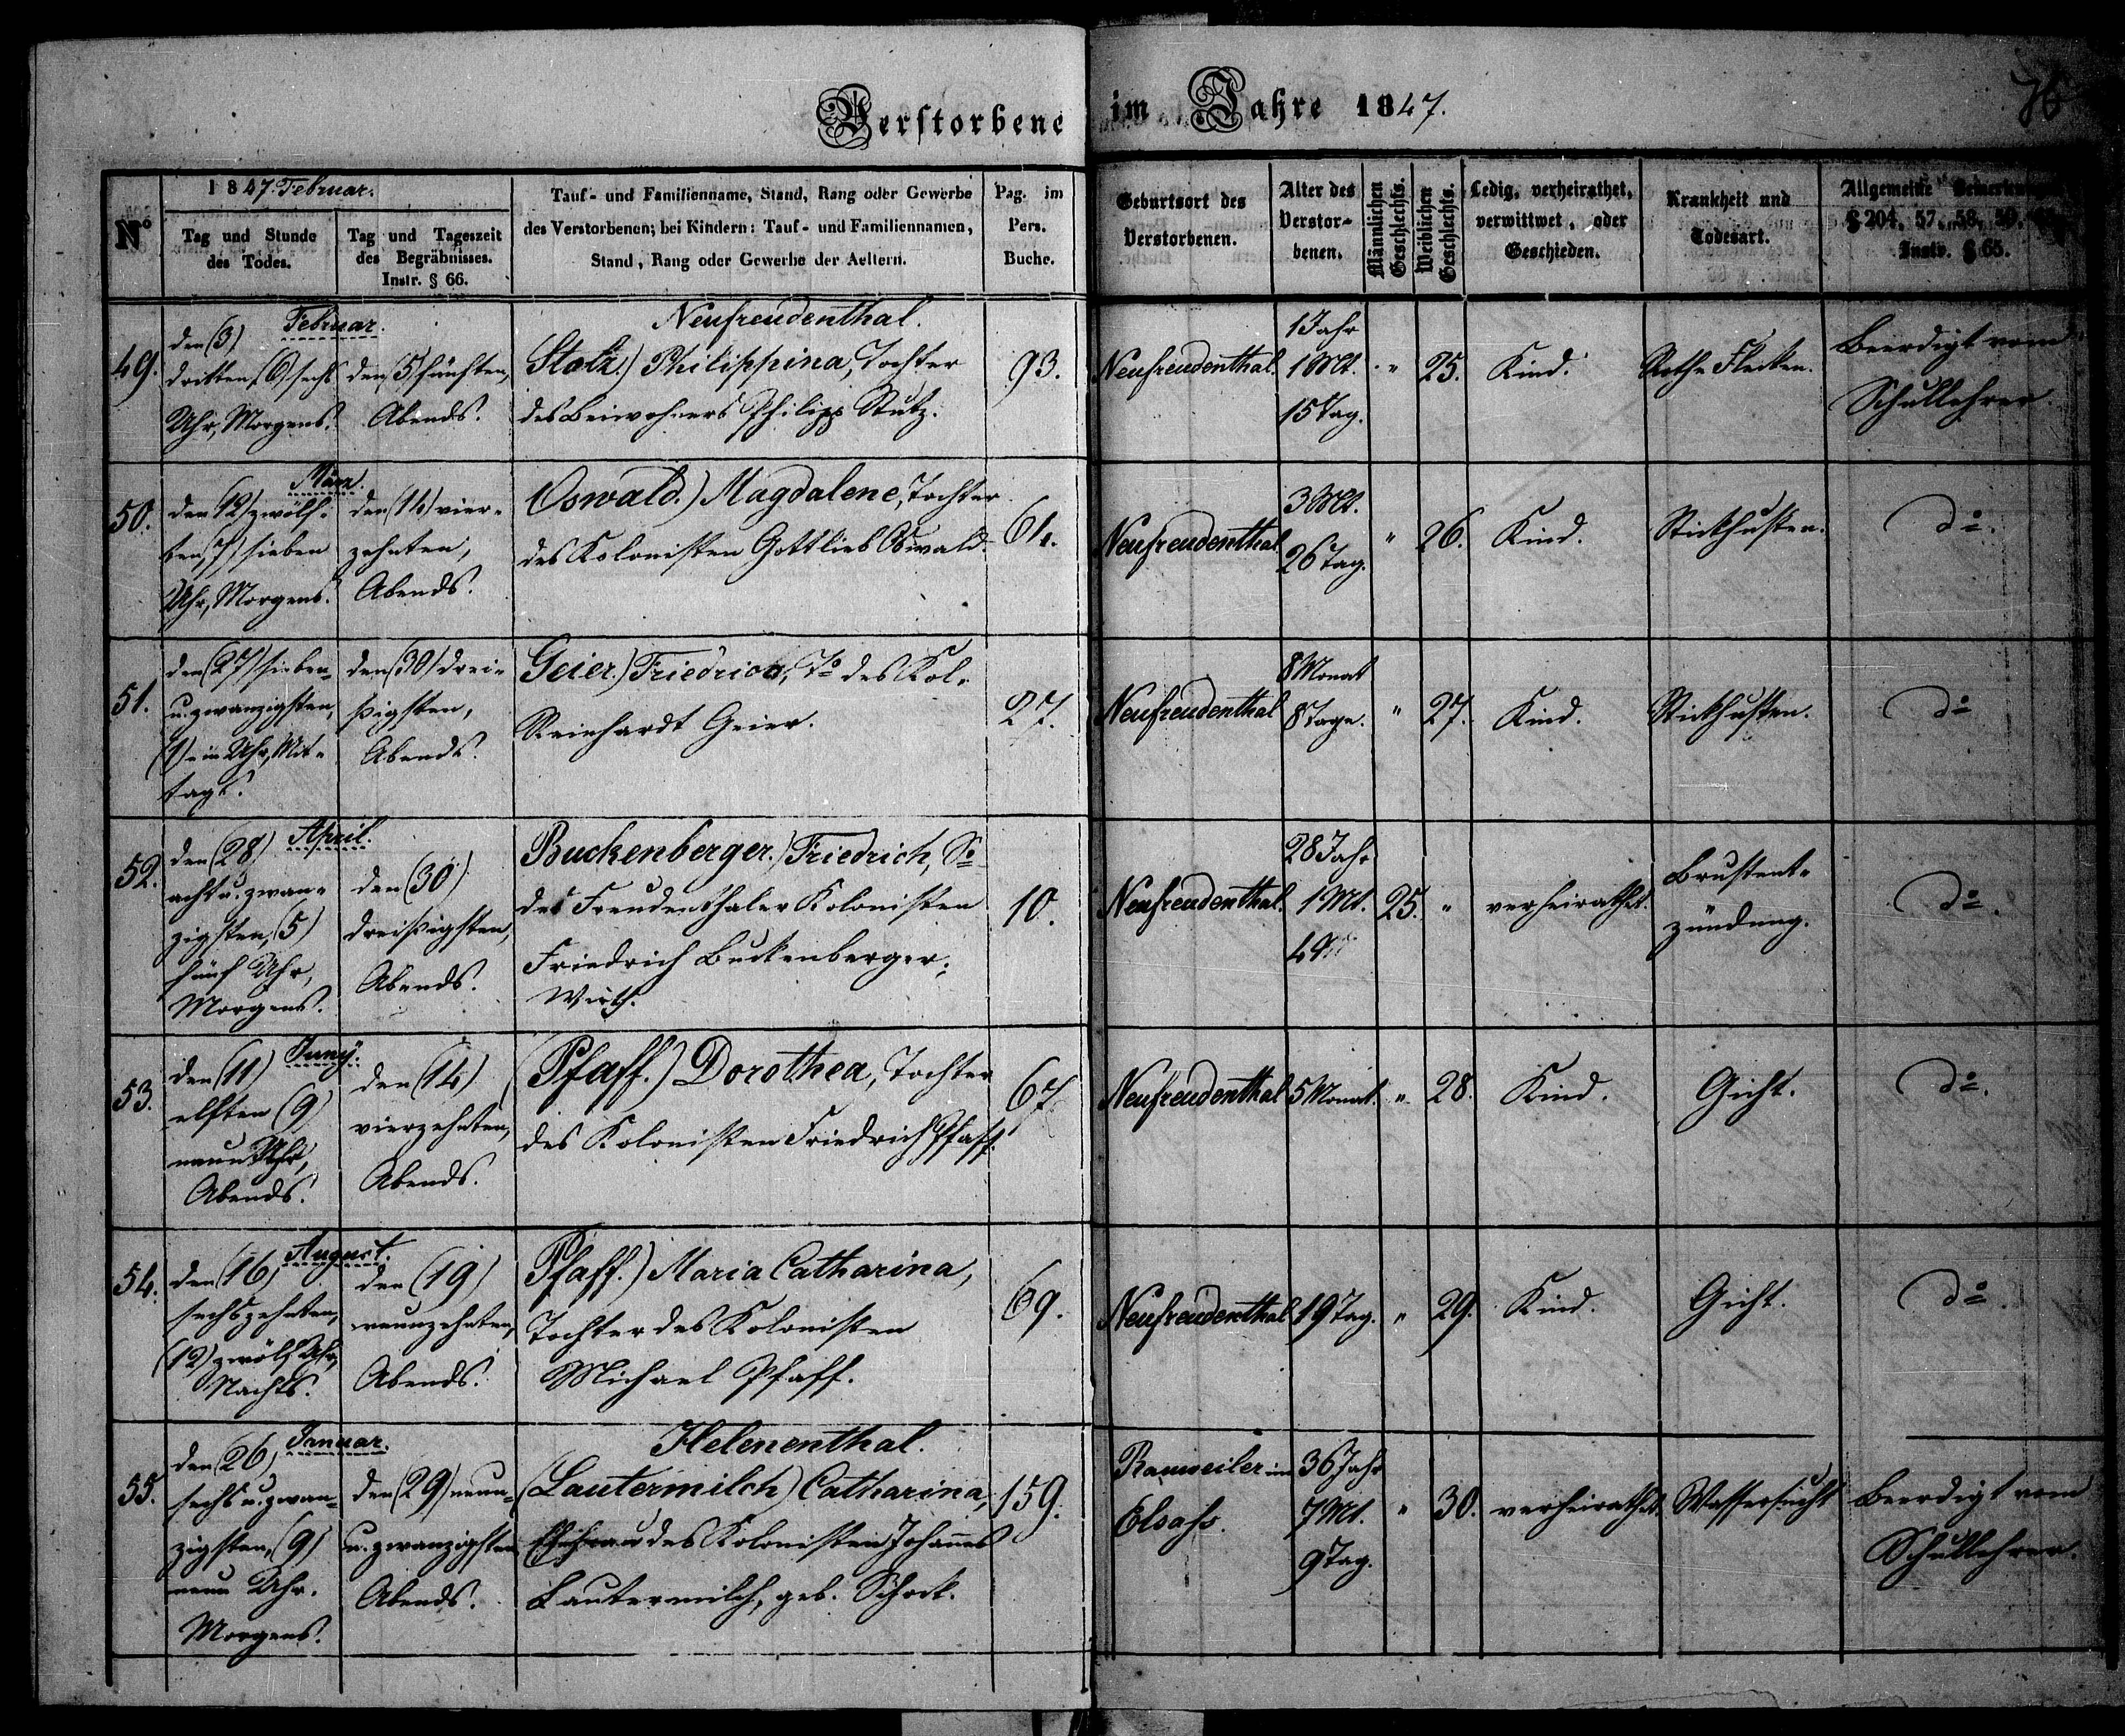 Verstorbene im Jahre 1847.
76
No
1847. Februar.
Tag und Stunde des Todes.
Tag und Tageszeit des Begräbnisses. Instr. § 66.
Tauf- und Familienname, Stand, Rang oder Gewerbe
des Verstorbenen; bei Kindern: Tauf- und Familiennamen,
Stand, Rang oder Gewerbe der Aeltern.
Pag. im
Pers.
Buche.
Geburtsort des
Verstorbenen.
Alter des
Verstor-
benen.
Männlichen Geschlechts.
Weiblichen Geschlechts.
Ledig, verheirathet,
verwittwet, oder
Geschieden.
Krankheit und
Todesart.
Allgemeine
§ 204. 57. 58. 59.
Instr. § 65.
49.
Februar.
den (3)
dritten, (6) sechs
Uhr, Morgens.
den (5) fünften,
Abends.
Neufreudenthal.
Stotz.) Philippina, Tochter
des Beiwohners Philipp Stutz.
93.
Neufreudenthal.
1 Jahr
1 Mt.
15 Tag.
"
25.
Kind.
Rothe Flecken.
Beerdigt vom
Schullehrer
50.
März.
den (12) zwölf-
ten, (7) sieben
Uhr, Morgens.
den (14) vier-
zehnten,
Abends.
(Oswald.) Magdalene, Tochter
des Kolonisten Gottlieb Oswald.
61.
Neufreudenthal
3 Mt.
26 Tag.
"
26.
Kind.
Stickhusten.
do.
51.
den (27) sieben-
u. zwanzigsten,
(1) ein Uhr, Mit-
tags.
den (30) drei-
ßigsten,
Abends.
Geier.) Friedrica, To des Kol.
Reinhardt Geier.
27.
Neufreudenthal
8 Monat
8 Tage.
"
27.
Kind.
Stickhusten.
do
52.
April.
den (28)
acht u. zwan-
zigsten, (5)
fünf Uhr,
Morgens.
den (30)
dreißigsten,
Abends.
Buckenberger.) Friedrich, So
des Freudenthaler Kolonisten
Friedrich Buckenberger;
Wirth.
10.
Neufreudenthal.
28 Jahr
1 Mt.
25.
"
verheirathet.
Brustent-
zündung.
do.
53.
Juny.
den (11)
elften (9)
neun Uhr,
Abends.
den (14)
vierzehnten,
Abends.
(Pfaff.) Dorothea, Tochter
des Kolonisten Friedrich Pfaff.
67.
Neufreudenthal
5 Monat.
"
28.
Kind.
Gicht.
do.
54.
August.
den (16)
sechszehnten,
(12) zwölf Uhr,
Nachts.
den (19)
neunzehnten,
Abends.
Pfaff.) Maria Catharina,
Tochter des Kolonisten
Michael Pfaff.
69.
Neufreudenthal
19 Tag.
"
29.
Kind.
Gicht.
do.
55.
Januar.
den (26)
sechs u. zwan-
zigsten, (9)
neun Uhr.
Morgens.
den (29) neun-
u. zwanzigsten
Abends.
Helenenthal.
(Lautermilch) Catharina,
Ehefrau des Kolonisten Johannes
Lautermilch, geb. Schock.
159.
Rauweiler im
Elsass.
36 Jahr
7 Mt.
9 Tag.
"
30.
verheirathet.
Wassersucht
Beerdigt vom
Schullehrer.